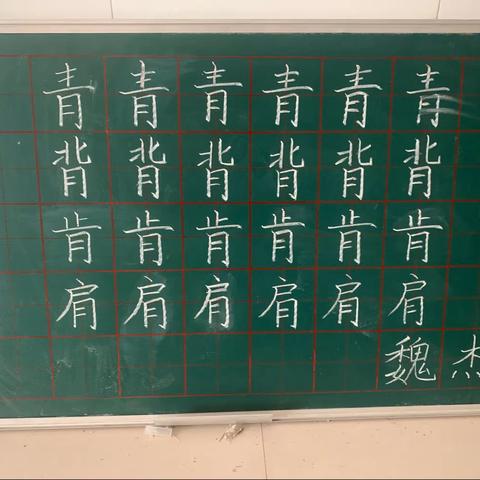 青青青青青青
背背背背背背
肯肯肯肯肯肯
肩肩肩肩肩肩
魏杰